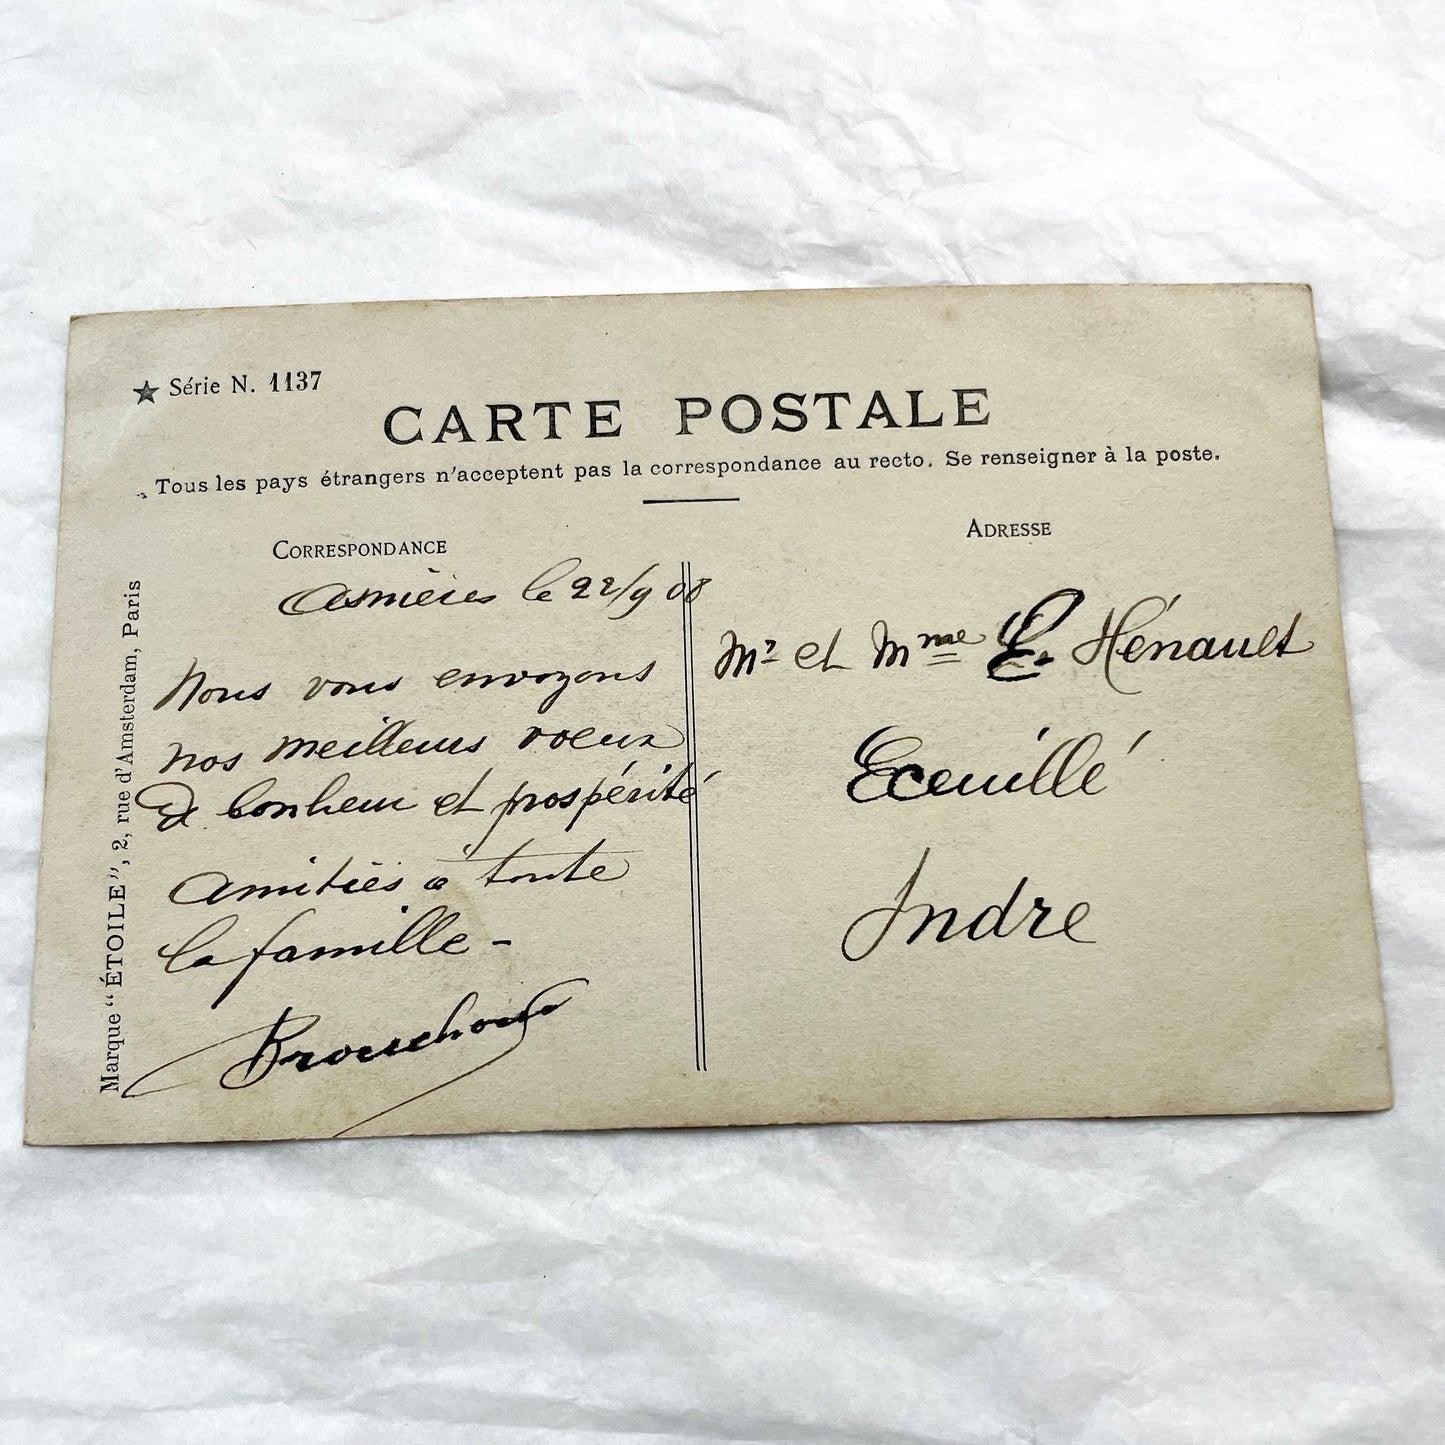 ★ Série N. 1137
CARTE POSTALE
Tous les pays étrangers n'acceptent pas la correspondance au recto. Se renseigner à la poste.
CORRESPONDANCE
Asnières le 22/9 08
Nous vous envoyons
nos meilleurs voeux
de bonheur et prospérité
Amitiés à toute
la famille -
ADRESSE
Mr et Mme E. Hénault
Eceuillé
Indre
Marque "ÉTOILE", 2, rue d'Amsterdam, Paris